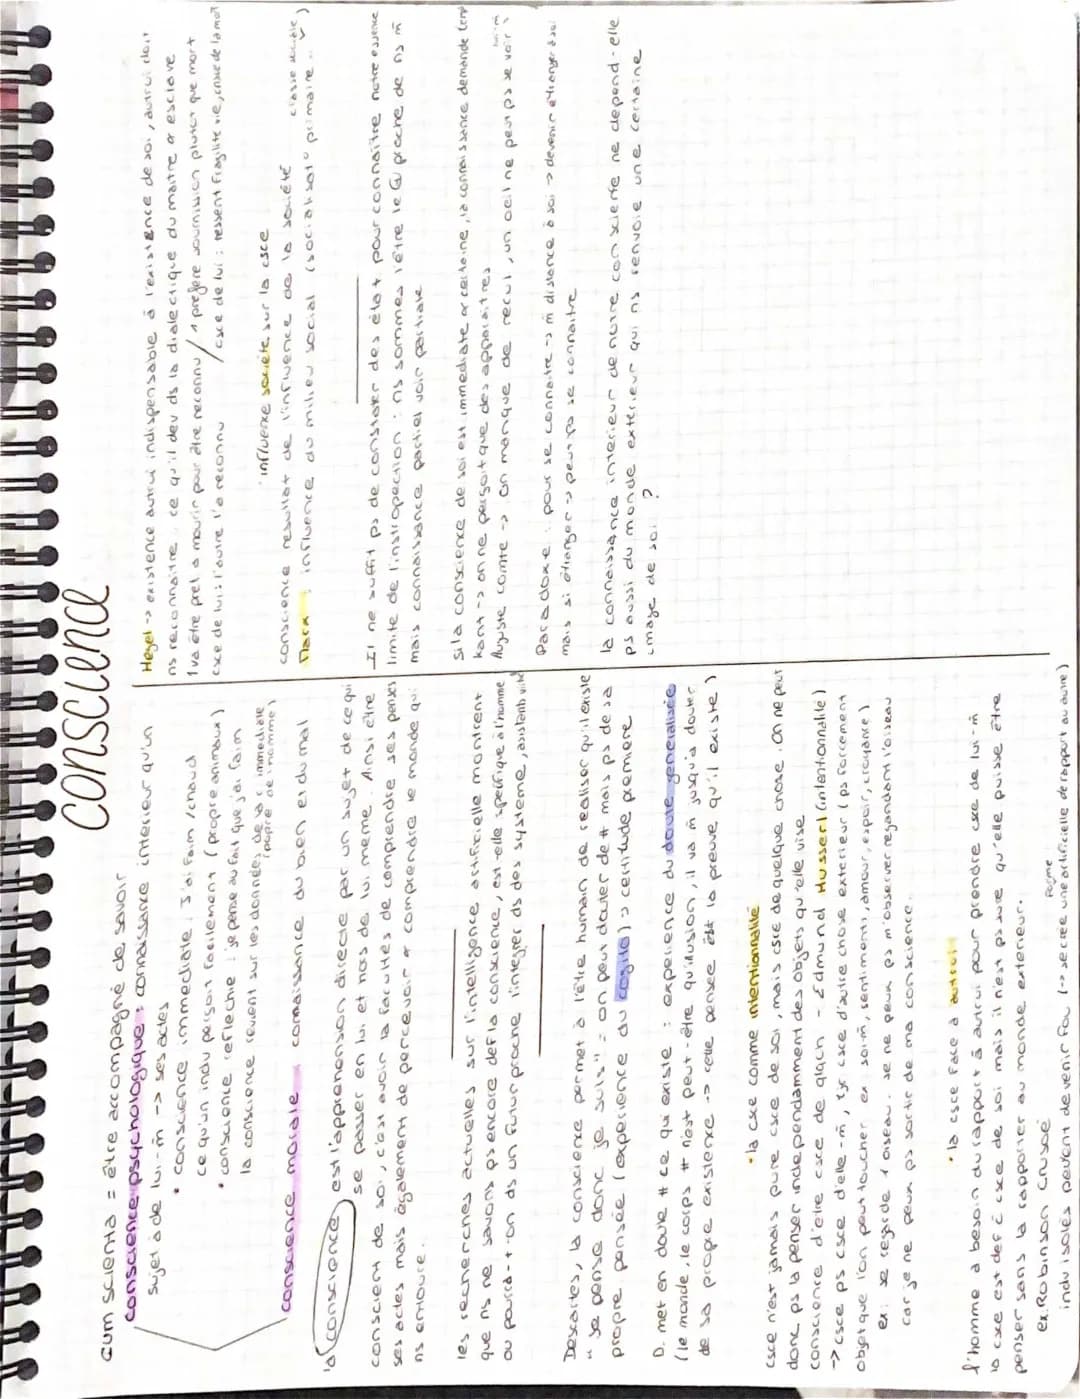 conscience
cum scientia = être accompagné de savoir
conscience psychologique : connaissance intérieur qu'un
sujet à de lui-m̄ -> ses actes
• conscience immédiate : J'ai faim / chaud
ce qu'un indiv perçoit facilement (propre animaux)
• conscience réfléchie : je pense au fait que j'ai faim
la conscience revient sur les données de la c immédiate
(propre de l'homme)
conscience morale : connaissance du bien et du mal
la conscience est l'appréhension directe par un sujet de ce qui
se passe en lui et hors de lui même. Ainsi être
conscient de soi, c'est avoir la facultés de comprendre ses pensées
ses actes mais également de percevoir et comprendre le monde qui
ns entoure.
les recherches actuelles sur l'intelligence artificielle montrent
que ns ne savons ps encore def la conscience, est-elle spécifique à l'homme
ou pourra-t-on ds un futur proche l'intégrer ds des système, aux
Descartes, la conscience permet à l'être humain de réaliser qu'il existe
"Je pense donc je suis" = on peut douter de # mais ps de sa
propre pensée (expérience du cogito) -> certitude première
D. met en doute # ce qui existe : expérience du doute généralisée
(le monde, le corps # n'est peut-être qu'illusion, il va m̄ jusqu'à douter
de sa propre existence -> cette pensée est la preuve qu'il existe)
• la csce comme intentionnalité
csce n'est jamais pure csce de soi, mais csce de quelque chose. on ne peut
donc ps la penser indépendamment des objets qu'elle vise
conscience d'être csce de qlqch - Edmund Husserl (intentionnalité)
-> csce ps csce d'elle-m̄, tjr csce d'autre chose extérieur (ps forcément
objet que l'on peut toucher, ex soi-m̄, sentiments, amour, espoir, croyance)
ex : je regarde 1 oiseau. Je ne peux ps m'observer regardant l'oiseau
car je ne peux ps sortir de ma conscience.
• la csce face à autrui
l'homme à besoin du rapport à autrui pour prendre csce de lui-m̄
la csce est der c csce de soi mais il n'est ps sure qu'elle puisse être
penser sans la rapporter au monde extérieur.
ex, Robinson Crusoé
indiv isolés peuvent devenir fou (-> se crée une artificielle de rapport au autre)
Hegel -> existence autrui indispensable à l'existence de soi, autrui doit
ns reconnaitre, ce qu'il dev ds la dialectique du maitre et esclave
1 va être pret à mourir pour être reconnu / 1 préfère soumission plutot que mort
csce de lui : l'autre l'a reconnu / csce de lui : ressent fragilité vie, csce de la mort
• influence société sur la csce
conscience résultat de l'influence de la société
Marx : influence du milieu social (socialisat° primaire, classe sociale)
Il ne suffit ps de constater des état pour connaitre notre essence
limite de l'instropection : ns sommes l'être le + proche de ns m̄
mais connaissance partiel voir partiale
Si la conscience de soi est immédiate et certeine, la connaissance demande temps
Kant -> on ne perçoit que des apparaitres
Auguste comte -> on manque de recul, un oeil ne peut ps se voir lui-m̄
Paradoxe : pour se connaitre -> m̄ distance à soi -> devenir étranger à soi
mais si étranger -> peut ps se connaitre
la connaissance intérieur de notre conscience ne dépend-elle
ps aussi du monde extérieur qui ns renvoie une certaine
image de soi ?